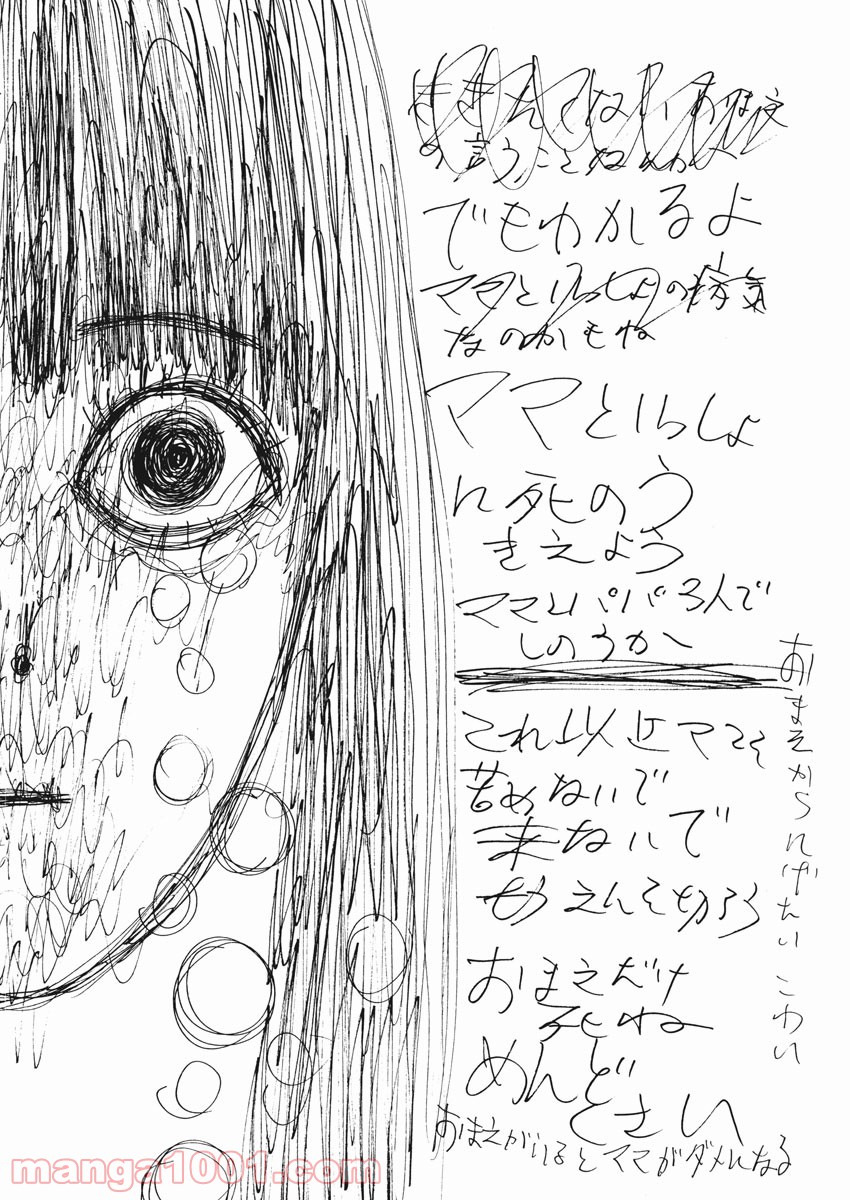 の言うことねぇわ
でもわかるよ
ママといっしょの病気
なのかもね
ママといっしょ
に死のう
きえよう
ママとパパ3人で
しのうか
これ以上ママを
苦めないで
来ないで
もうえんを切ろう
おまえだけ
死ね
めんど
くさい
おまえがいるとママがダメになる
おまえからにげたい こわい
manga1001.com